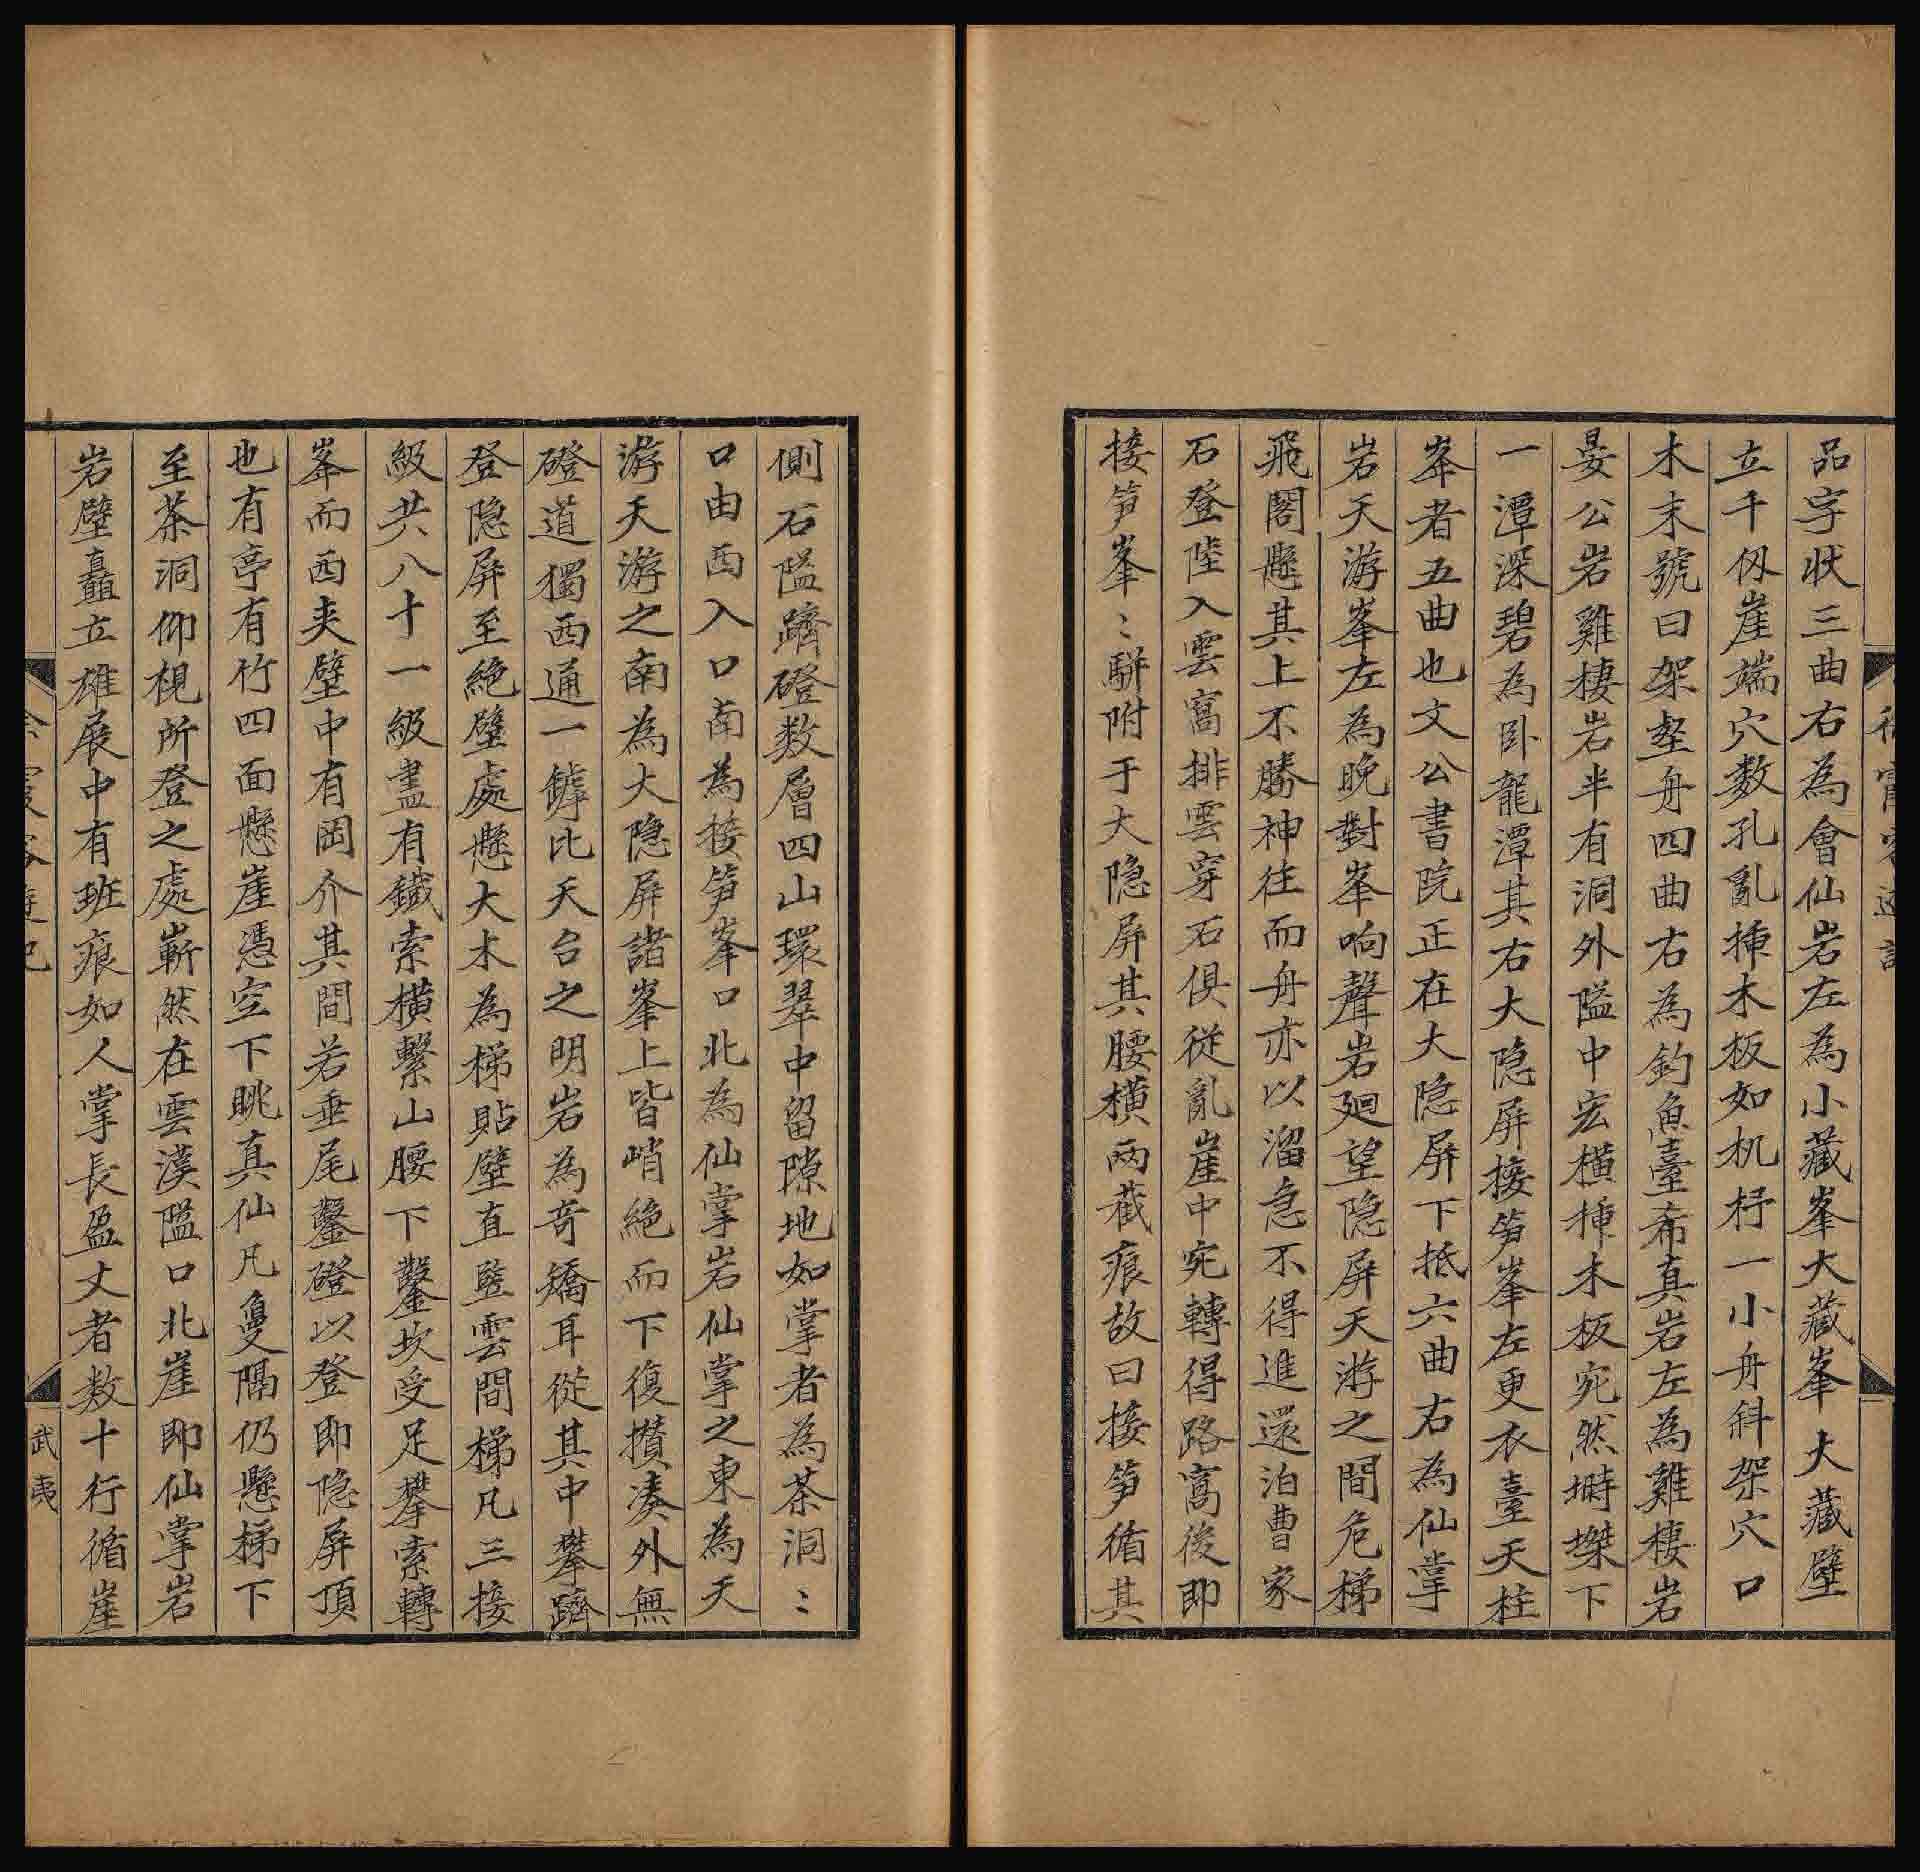 品字状三曲右為會仙岩左為小藏峯大藏峯大藏壁
立千仭崖端穴数孔亂揷木板如机杼一小舟斜架穴口
木末號曰架壑舟四曲右為釣魚臺希真岩左為雞棲岩
晏公岩雞棲岩半有洞外隘中宏橫揷木板宛然塒榤下
一潭深碧為卧龍潭其右大隐屏接笋峯左更衣臺天柱
峯者五曲也文公書院正在大隐屏下抵六曲右為仙掌
岩天游峯左為晚對峯响聲岩廻望隐屏天游之間危梯
飛閣懸其上不勝神往而舟亦以溜急不得進還泊曹家
石登陸入雲窩排雲穿石俱從亂崖中宛轉得路窩後即
接笋峯〻駢附于大隐屏其腰橫兩截痕故曰接笋循其
側石隘躋磴数層四山環翠中留隙地如掌者為茶洞〻
口由西入口南為接笋峯口北為仙掌岩仙掌之東為天
游天游之南為大隐屏諸峯上皆峭絶而下復攅湊外無
磴道獨西通一罅比天台之明岩為奇矯耳從其中攀躋
登隐屏至絶壁處懸大木為梯貼壁直竪雲間梯凡三接
級共八十一級盡有鐵索橫繋山腰下鑿坎受足攀索轉
峯而西夹壁中有岡介其間若垂尾鑿磴以登即隐屏頂
也有亭有竹四面懸崖憑空下眺真仙凡敻隔仍懸梯下
至茶洞仰梘所登之處嶄然在雲漢隘口北崖即仙掌岩
岩壁矗立雄展中有班痕如人掌長盈丈者数十行循崖
武夷